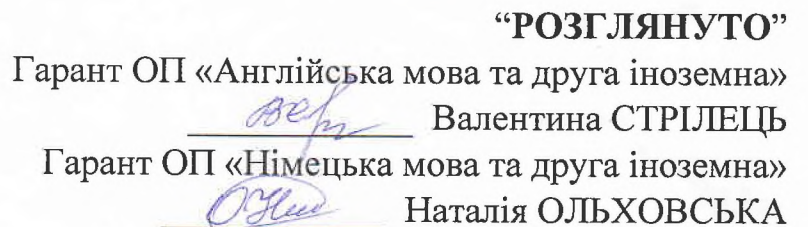 “РОЗГЛЯНУТО”
Гарант ОП «Англійська мова та друга іноземна»
Валентина СТРІЛЕЦЬ
Гарант ОП «Німецька мова та друга іноземна»
Наталія ОЛЬХОВСЬКА